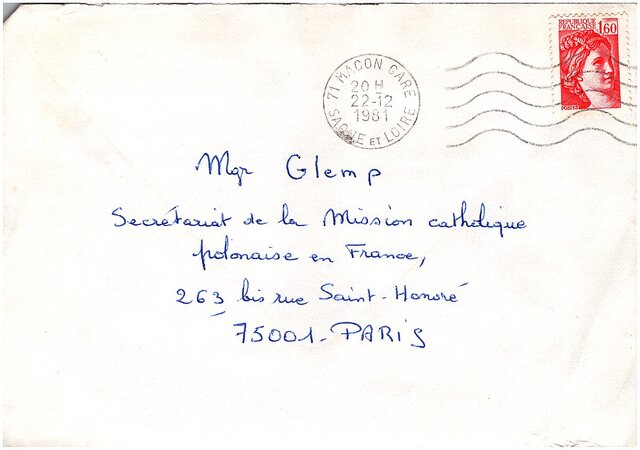 REPUBLIQUE
FRANÇAISE 1,60
POSTES
71 MACON GARE
20 H
22-12
1981
SAONE ET LOIRE
Mgr Glemp
Secrétariat de la Mission catholique
polonaise en France,
263 bis rue Saint-Honoré
75001-PARIS